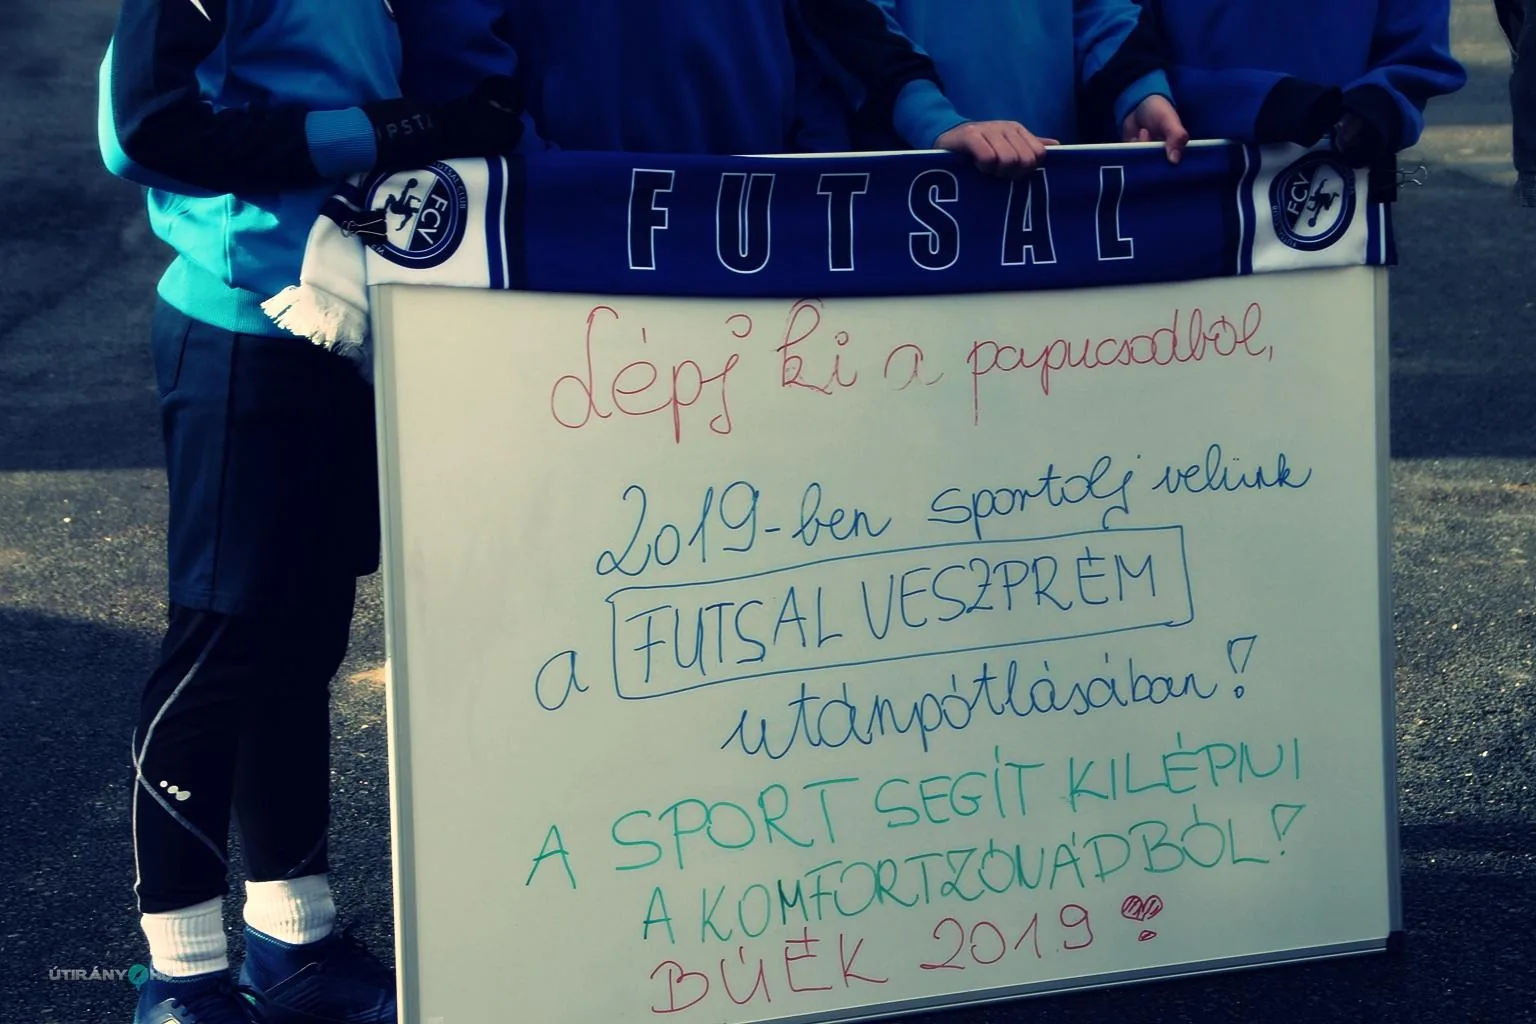 FUTSAL
FCV
FCV
Lépj ki a papucsodból,
2019-ben sportolj velünk
a FUTSAL VESZPRÉM
utánpótlásában!
A SPORT SEGÍT KILÉPNI
A KOMFORTZÓNÁDBÓL!
BÚÉK 2019
ÚTIRÁNY.HU